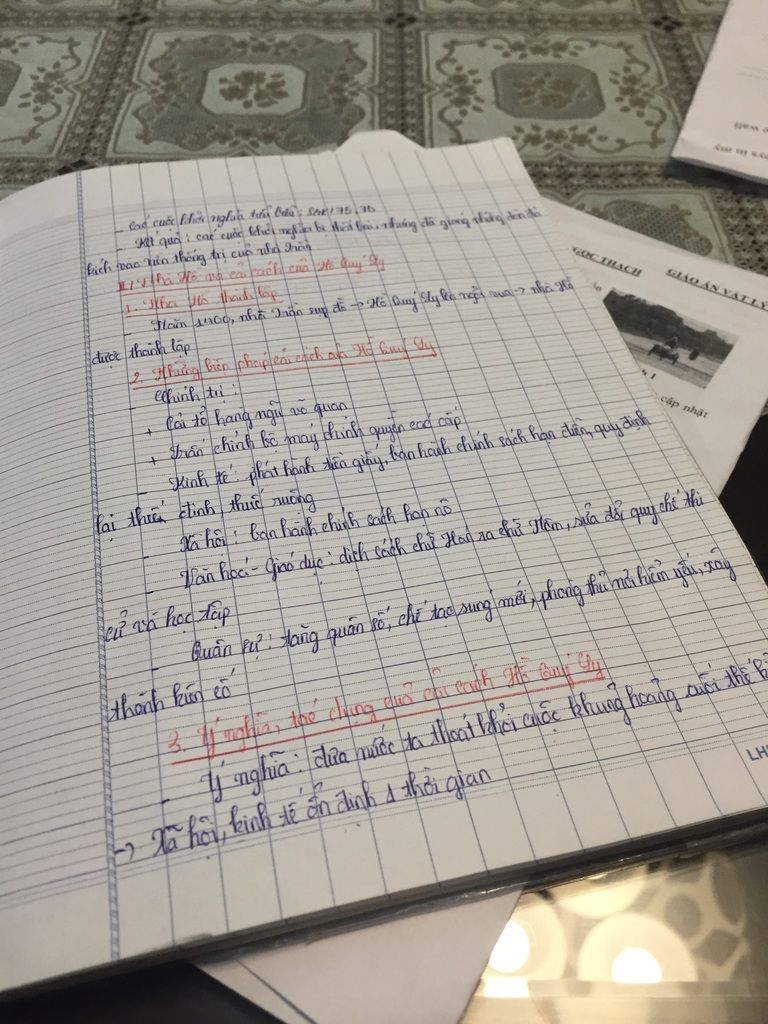 - Các cuộc khởi nghĩa tiêu biểu: SGK/75, 76
- Kết quả: các cuộc khởi nghĩa bị thất bại, nhưng đã giáng những đòn đả
kích vào nền thống trị của nhà Trần
II. Nhà Hồ và cải cách của Hồ Quý Ly
1. Nhà Hồ thành lập
- Năm 1400, nhà Trần sụp đổ → Hồ Quý Ly lên ngôi vua → nhà Hồ
được thành lập
2. Những biện pháp cải cách của Hồ Quý Ly
- Chính trị:
+ Cải tổ hàng ngũ võ quan
+ Trấn chỉnh bộ máy chính quyền các cấp
- Kinh tế: phát hành tiền giấy, ban hành chính sách hạn điền, quy định
lại thuế đinh thuế ruộng
- Xã hội: ban hành chính sách hạn nô
- Văn hoá - Giáo dục: dịch sách chữ Hán ra chữ Nôm, sửa đổi quy chế thi
cử và học tập
- Quân sự: tăng quân số, chế tạo súng mới, phòng thủ nơi hiểm yếu, xây
thành kiên cố
3. Ý nghĩa, tác dụng của cải cách Hồ Quý Ly
- Ý nghĩa: đưa nước ta thoát khỏi cuộc khủng hoảng cuối thế k
→ Xã hội, kinh tế ổn định 1 thời gian
LH
NGỌC THẠCH GIÁO ÁN VẬT LÝ
cập nhật
wall